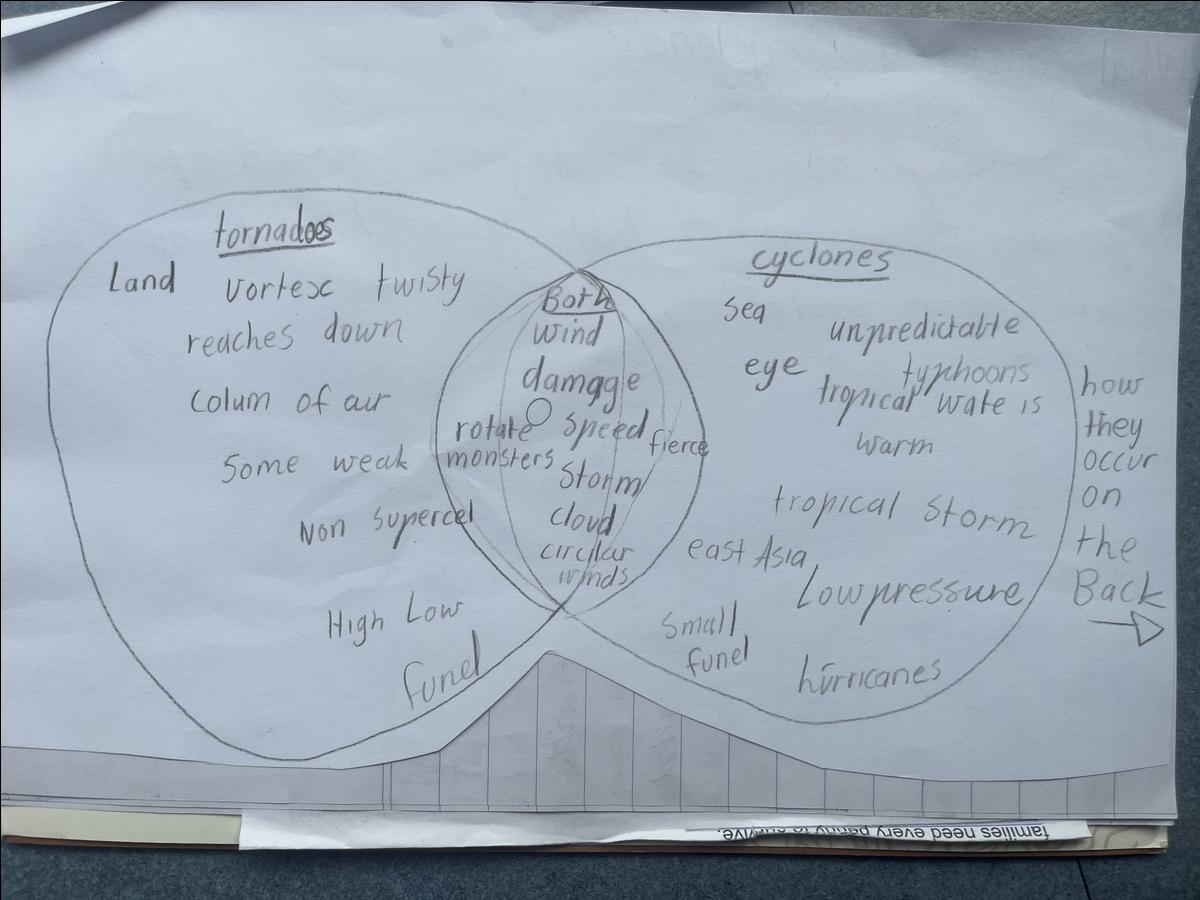 tornadoes
Land vortex twisty
reaches down
Colum of air
Some weak
Non Supercel
High Low
funel
Both
wind
damage
rotate speed fierce
monsters
Storm
cloud
circular
winds
cyclones
sea
unpredictable
eye typhoons
tropical wate is
warm
tropical storm
east Asia
Low pressure
Small
funel
hurricanes
how
they
occur
on
the
Back
families need every penny to survive.